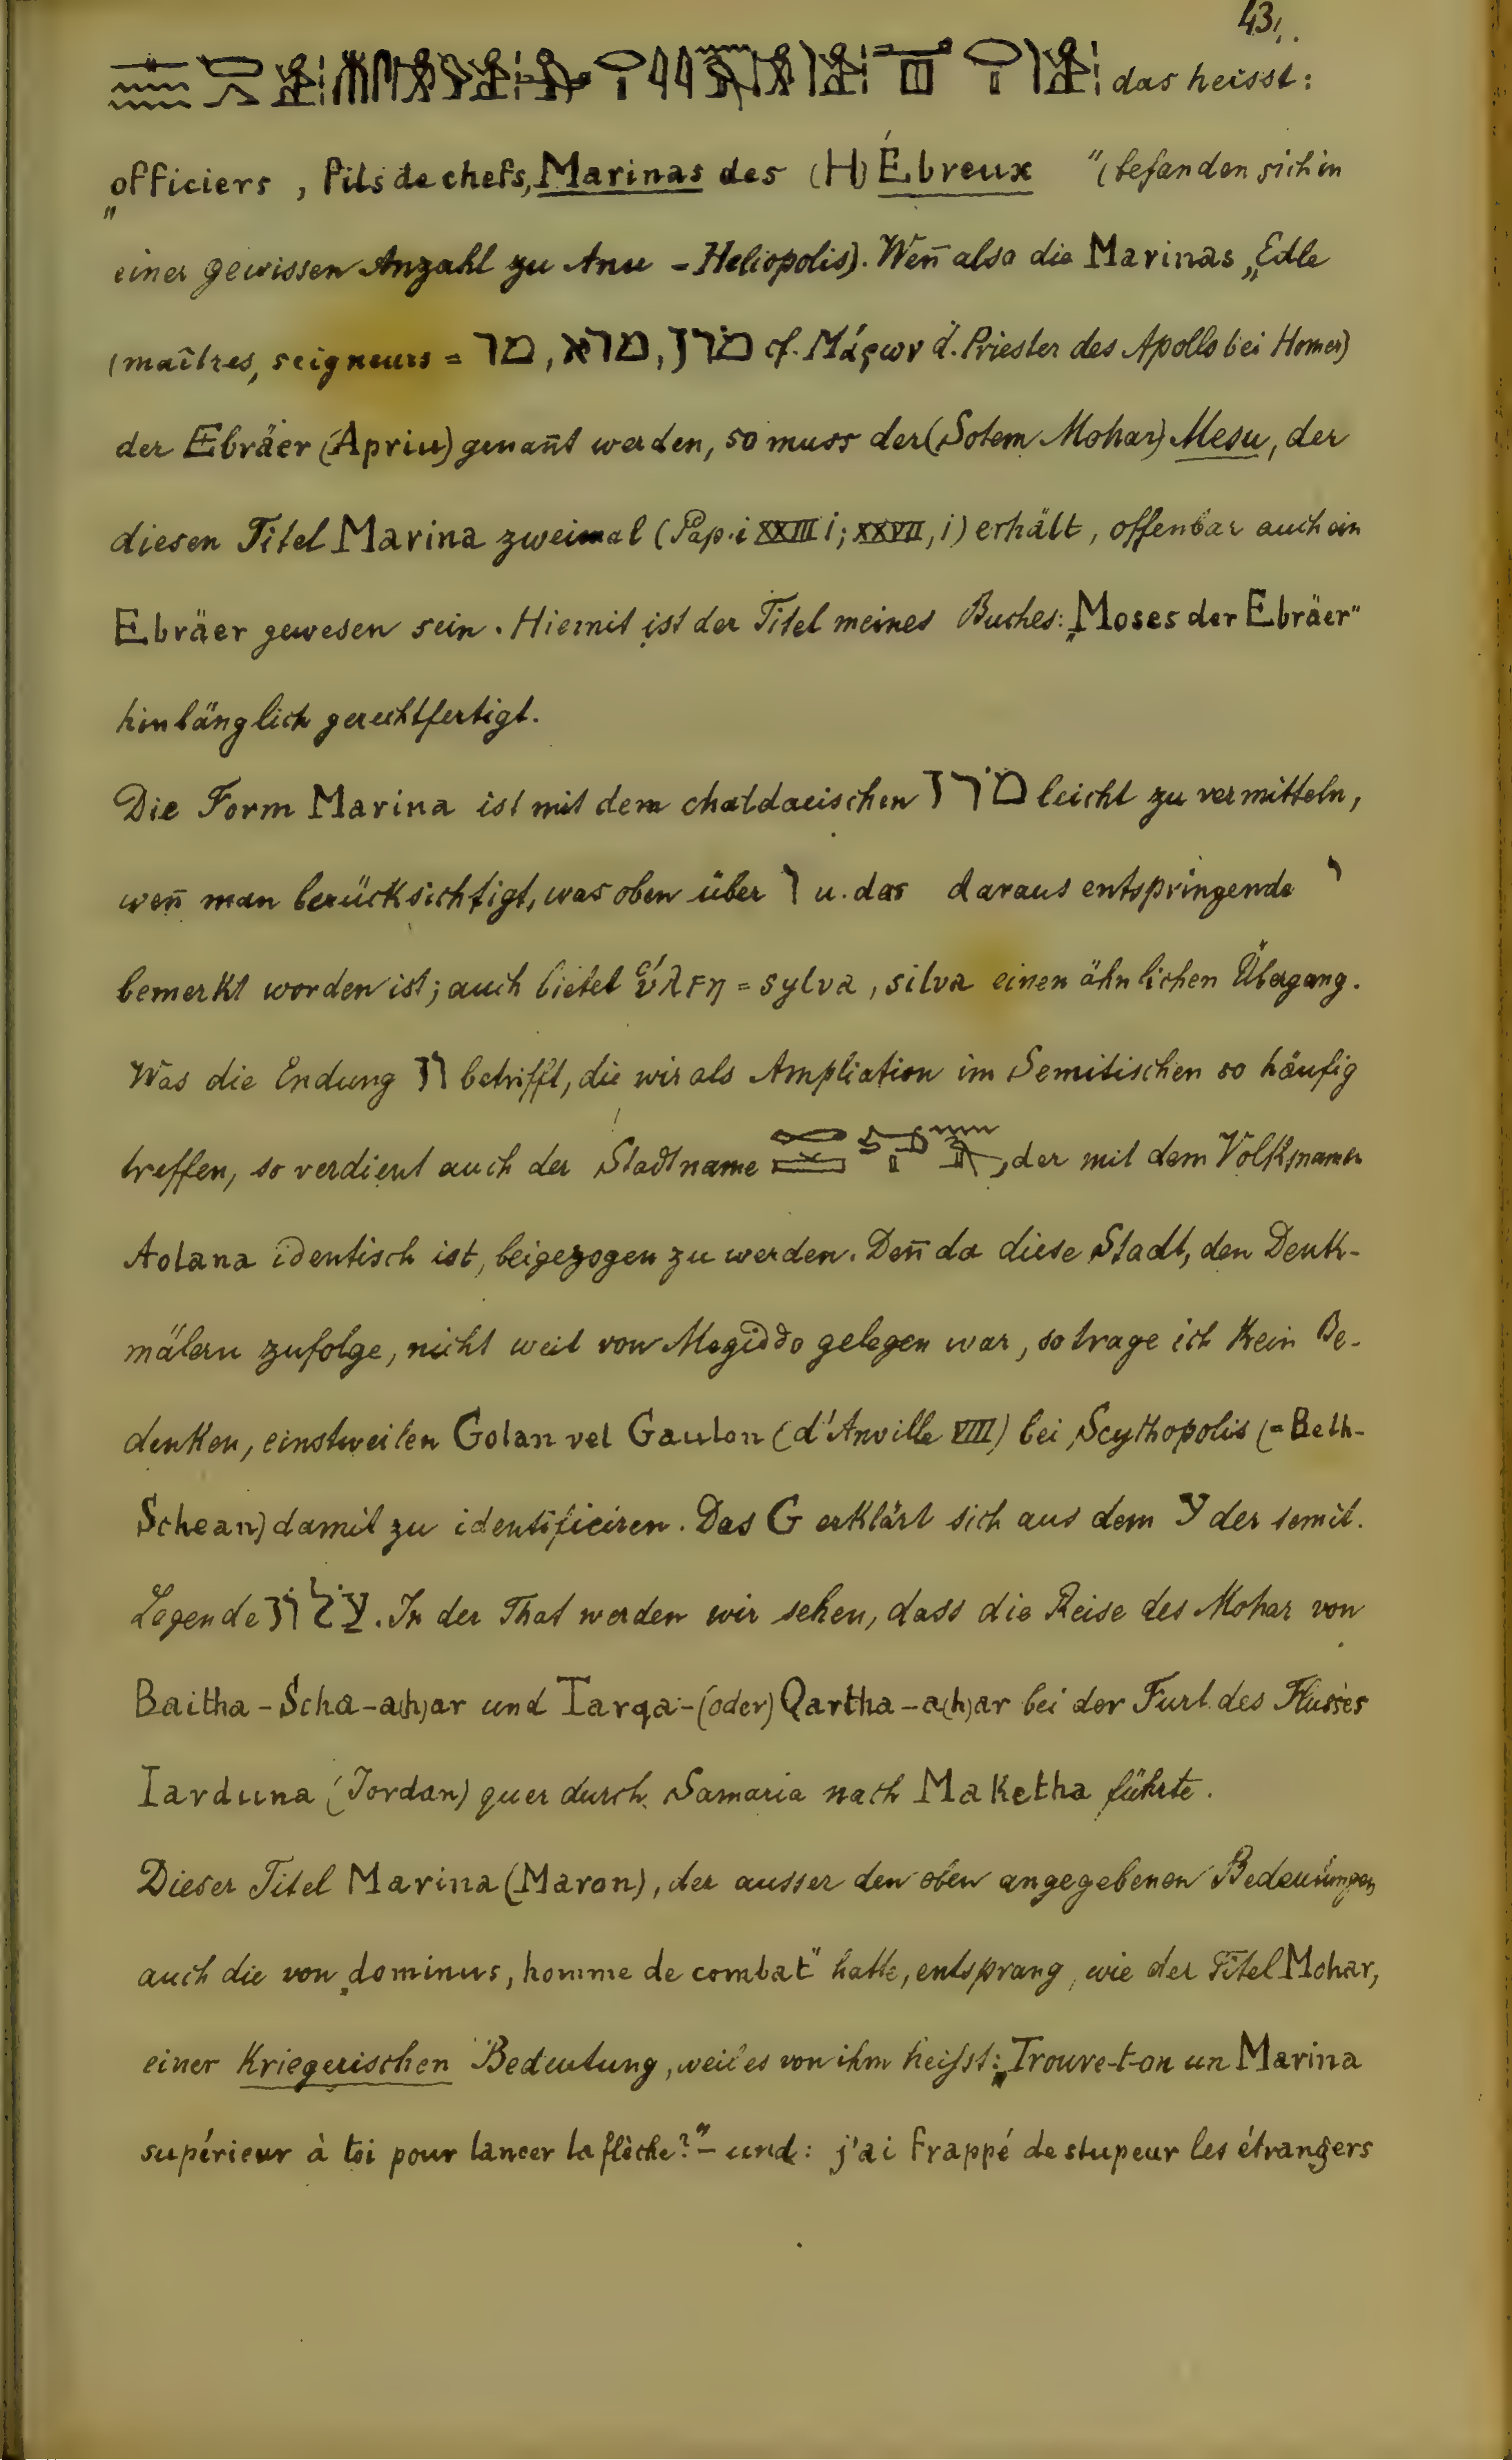 43,.
das heisst:
„officiers, fils de chefs, Marinas des (H)Ébreux" (befanden sich in
einer gewissen Anzahl zu Anu - Heliopolis). Wen̄ also die Marinas „Edle
(maîtres, seigneurs = מר, מרא, מרן cf. Μάρων d. Priester des Apollo bei Homer)
der Ebräer (Apriu) genan̄t werden, so muss der (Sotem Mohar) Mesu, der
diesen Titel Marina zweimal (Pap. i XXIII i; XXVII, i) erhält, offenbar auch ein
Ebräer gewesen sein. Hiemit ist der Titel meines Buches: „Moses der Ebräer"
hinlänglich gerechtfertigt.
Die Form Marina ist mit dem chaldaeischen מֹרן leicht zu vermitteln,
wen̄ man berücksichtigt, was oben über ו u. das daraus entspringende י
bemerkt worden ist; auch bietet ὕλFη = sylva, silva einen ähnlichen Übergang.
Was die Endung ון betrifft, die wir als Ampliation im Semitischen so häufig
treffen, so verdient auch der Stadtname , der mit dem Volksnamen
Aolana identisch ist, beigezogen zu werden. Den̄ da diese Stadt, den Denk-
mälern zufolge, nicht weit von Megiddo gelegen war, so trage ich kein Be-
denken, einstweilen Golan vel Gaulon (d'Anville VIII) bei Scythopolis (= Beth-
Schean) damit zu identificiren. Das G erklärt sich aus dem ע der semit.
Legende עלון. In der That werden wir sehen, dass die Reise des Mohar von
Baitha-Scha-a(h)ar und Tarqa-(oder) Qartha-a(h)ar bei der Furt des Flusses
Iarduna (Jordan) quer durch Samaria nach Maketha führte.
Dieser Titel Marina (Maron), der ausser den oben angegebenen Bedeutungen
auch die von „dominus, homme de combat" hatte, entsprang, wie der Titel Mohar,
einer kriegerischen Bedeutung, weil es von ihm heisst: „Trouve-t-on un Marina
supérieur à toi pour lancer la flèche?" – und: j'ai frappé de stupeur les étrangers